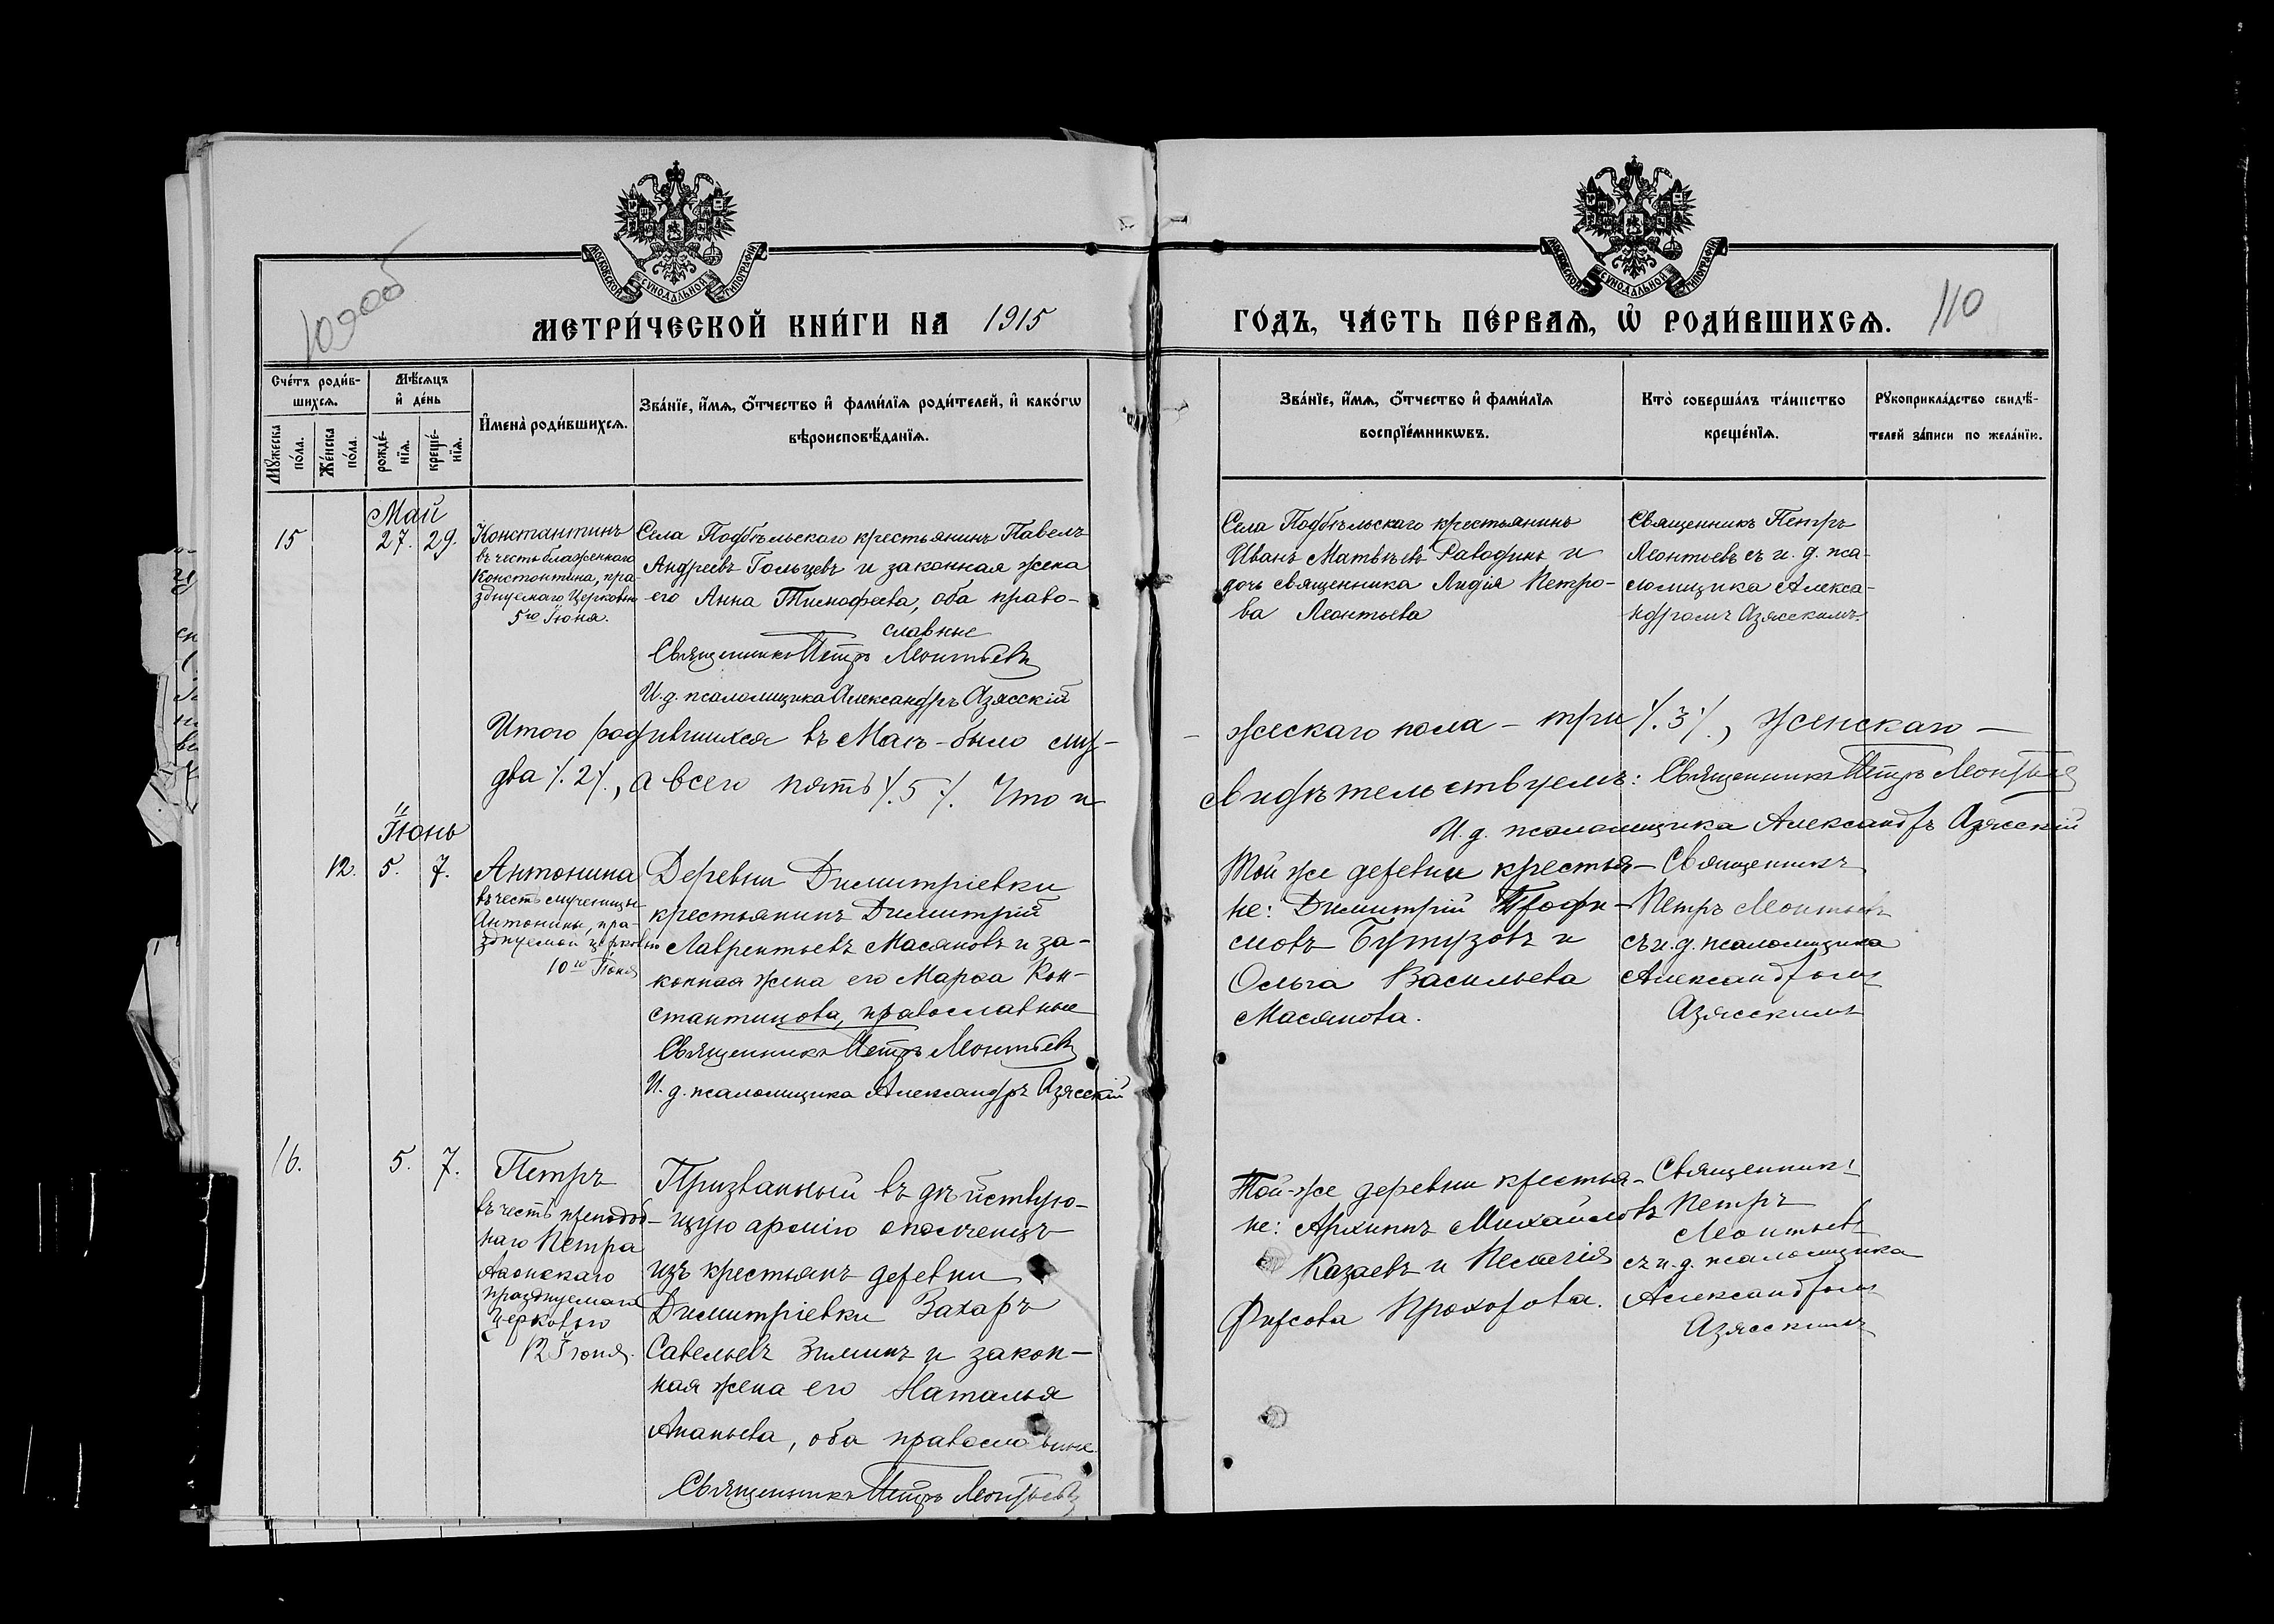 МОСКОВСКОЙ СѴНОДАЛЬНОЙ ТИПОГРАФІИ
МОСКОВСКОЙ СѴНОДАЛЬНОЙ ТИПОГРАФІИ
109об
МЕТРИ́ЧЕСКОЙ КНИ́ГИ НА 1915
ГО́ДЪ, ЧА́СТЬ ПЕ́РВАѦ, Ѡ҆ РОДИ́ВШИХСѦ.
110
Сче́тъ роди́в-
шихсѧ.
Мѣ́сѧцъ
и҆ де́нь
Мꙋ́жеска
по́ла.
Же́нска
по́ла.
рожде́-
нїѧ.
креще́-
нїѧ.
И҆мена̀ роди́вшихсѧ.
Зва́нїе, и҆́мѧ, ѻ҆́тчество и҆ фами́лїѧ роди́телей, и҆ како́гѡ
вѣроисповѣ́данїѧ.
Зва́нїе, и҆́мѧ, ѻ҆́тчество и҆ фами́лїѧ
воспрїе́мникѡвъ.
Кто̀ соверша́лъ та́инство
креще́нїѧ.
Рꙋкоприкла́дство свидѣ́-
телей за́писи по жела́нїю.
Май
15
27. 29.
Константинъ
въ честь блаженнаго
Константина, пра-
зднуемаго Церковію
5го Іюня.
Села Подбѣльскаго крестьянинъ Павелъ
Андреевъ Гольцевъ и законная жена
его Анна Тимофеева, оба право-
славные
Священникъ Петръ Леонтьевъ
И. д. псаломщика Александръ Азясскій
Села Подбѣльскаго крестьянинъ
Иванъ Матвѣевъ и
дочь священника Лидія Петро-
ва Леонтьева
Священникъ Петръ
Леонтьевъ съ и. д. пса-
ломщика Алекса-
ндромъ Азясскимъ.
Итого родившихся въ Маѣ - было муж-
- жескаго пола - три /.3/., женскаго -
два /.2/., а всего пять /.5/. Что и
свидѣтельствуемъ: Священникъ Петръ Леонтьевъ
И. д. псаломщика Александръ Азясскій
Іюнь
12. 5. 7.
Антонина
въ честь мученицы
Антонины, пра-
зднуемой церковію
10го Іюня
Деревни Димитріевки
крестьянинъ Димитрій
Лаврентьевъ Масяновъ и за-
конная жена его Марѳа Кон-
стантинова, православные
Священникъ Петръ Леонтьевъ
И. д. псаломщика Александръ Азясскій
Той же деревни крестья-
не: Димитрій Трофи-
мовъ Бутузовъ и
Ольга Васильева
Масянова.
Священникъ
Петръ Леонтьевъ
съ и. д. псаломщика
Александромъ
Азясскимъ
16. 5. 7.
Петръ
въ честь преподоб-
наго Петра
Аѳонскаго
празднуемаго
Церковью
12 Іюня.
Призванный въ дѣйствую-
щую армію ополченецъ
изъ крестьянъ деревни
Димитріевки Захаръ
Савельевъ Зиминъ и закон-
ная жена его Наталья
Ананьева, оба православные.
Священникъ Петръ Леонтьевъ
Той-же деревни крестья-
не: Архипъ Михайловъ
Казаевъ и Пелагія
Фирсова Прохорова.
Священникъ
Петръ
Леонтьевъ
съ и. д. псаломщика
Александромъ
Азясскимъ